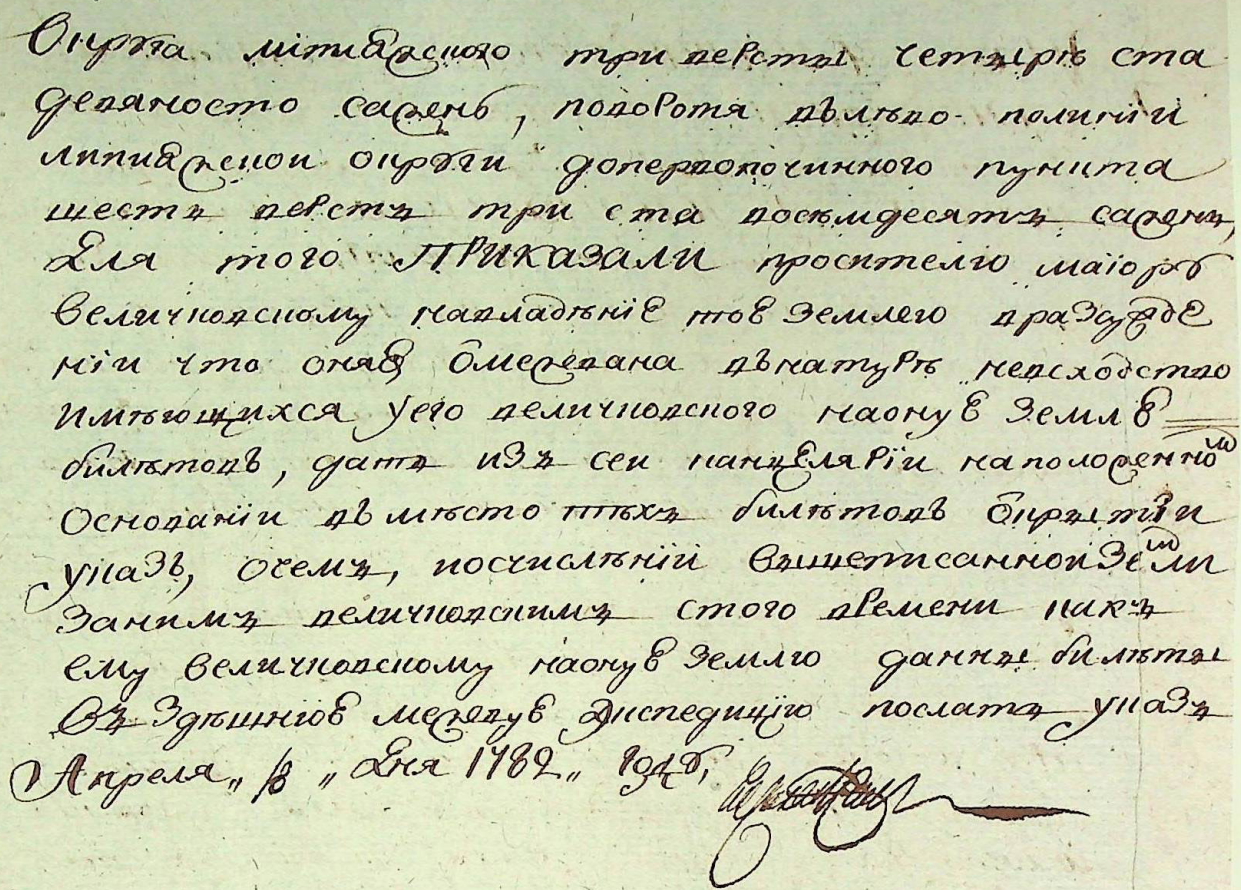 Округа липияжского три версты четыре ста
девяносто сажень, поворотя въ лѣво полиніи
липияжскои округи допервопочинного пункта
шесть верстъ три ста восѣмдесятъ сажень,
Для того ПРИКАЗАЛИ просителю маіору
Величковскому навладѣніе тое землею вразсужде
ніи что оная обмежевана въ натурѣ невсходство
имѣющихся у его величковского наонуе землѣ
билѣтовъ, дать изъ сеи канцеляріи наположенном
Основаніи въ мѣсто тѣхъ билѣтовъ
указъ, очемъ, посчислѣніи вышеписанной земли
Занимъ величковскимъ стого времени какъ
ему Величковскому наонуе землю данны билѣты
Въ Здѣшнюе межевуе Экспедицію послать указъ
Апреля „ „ Дня 1782 „ году,